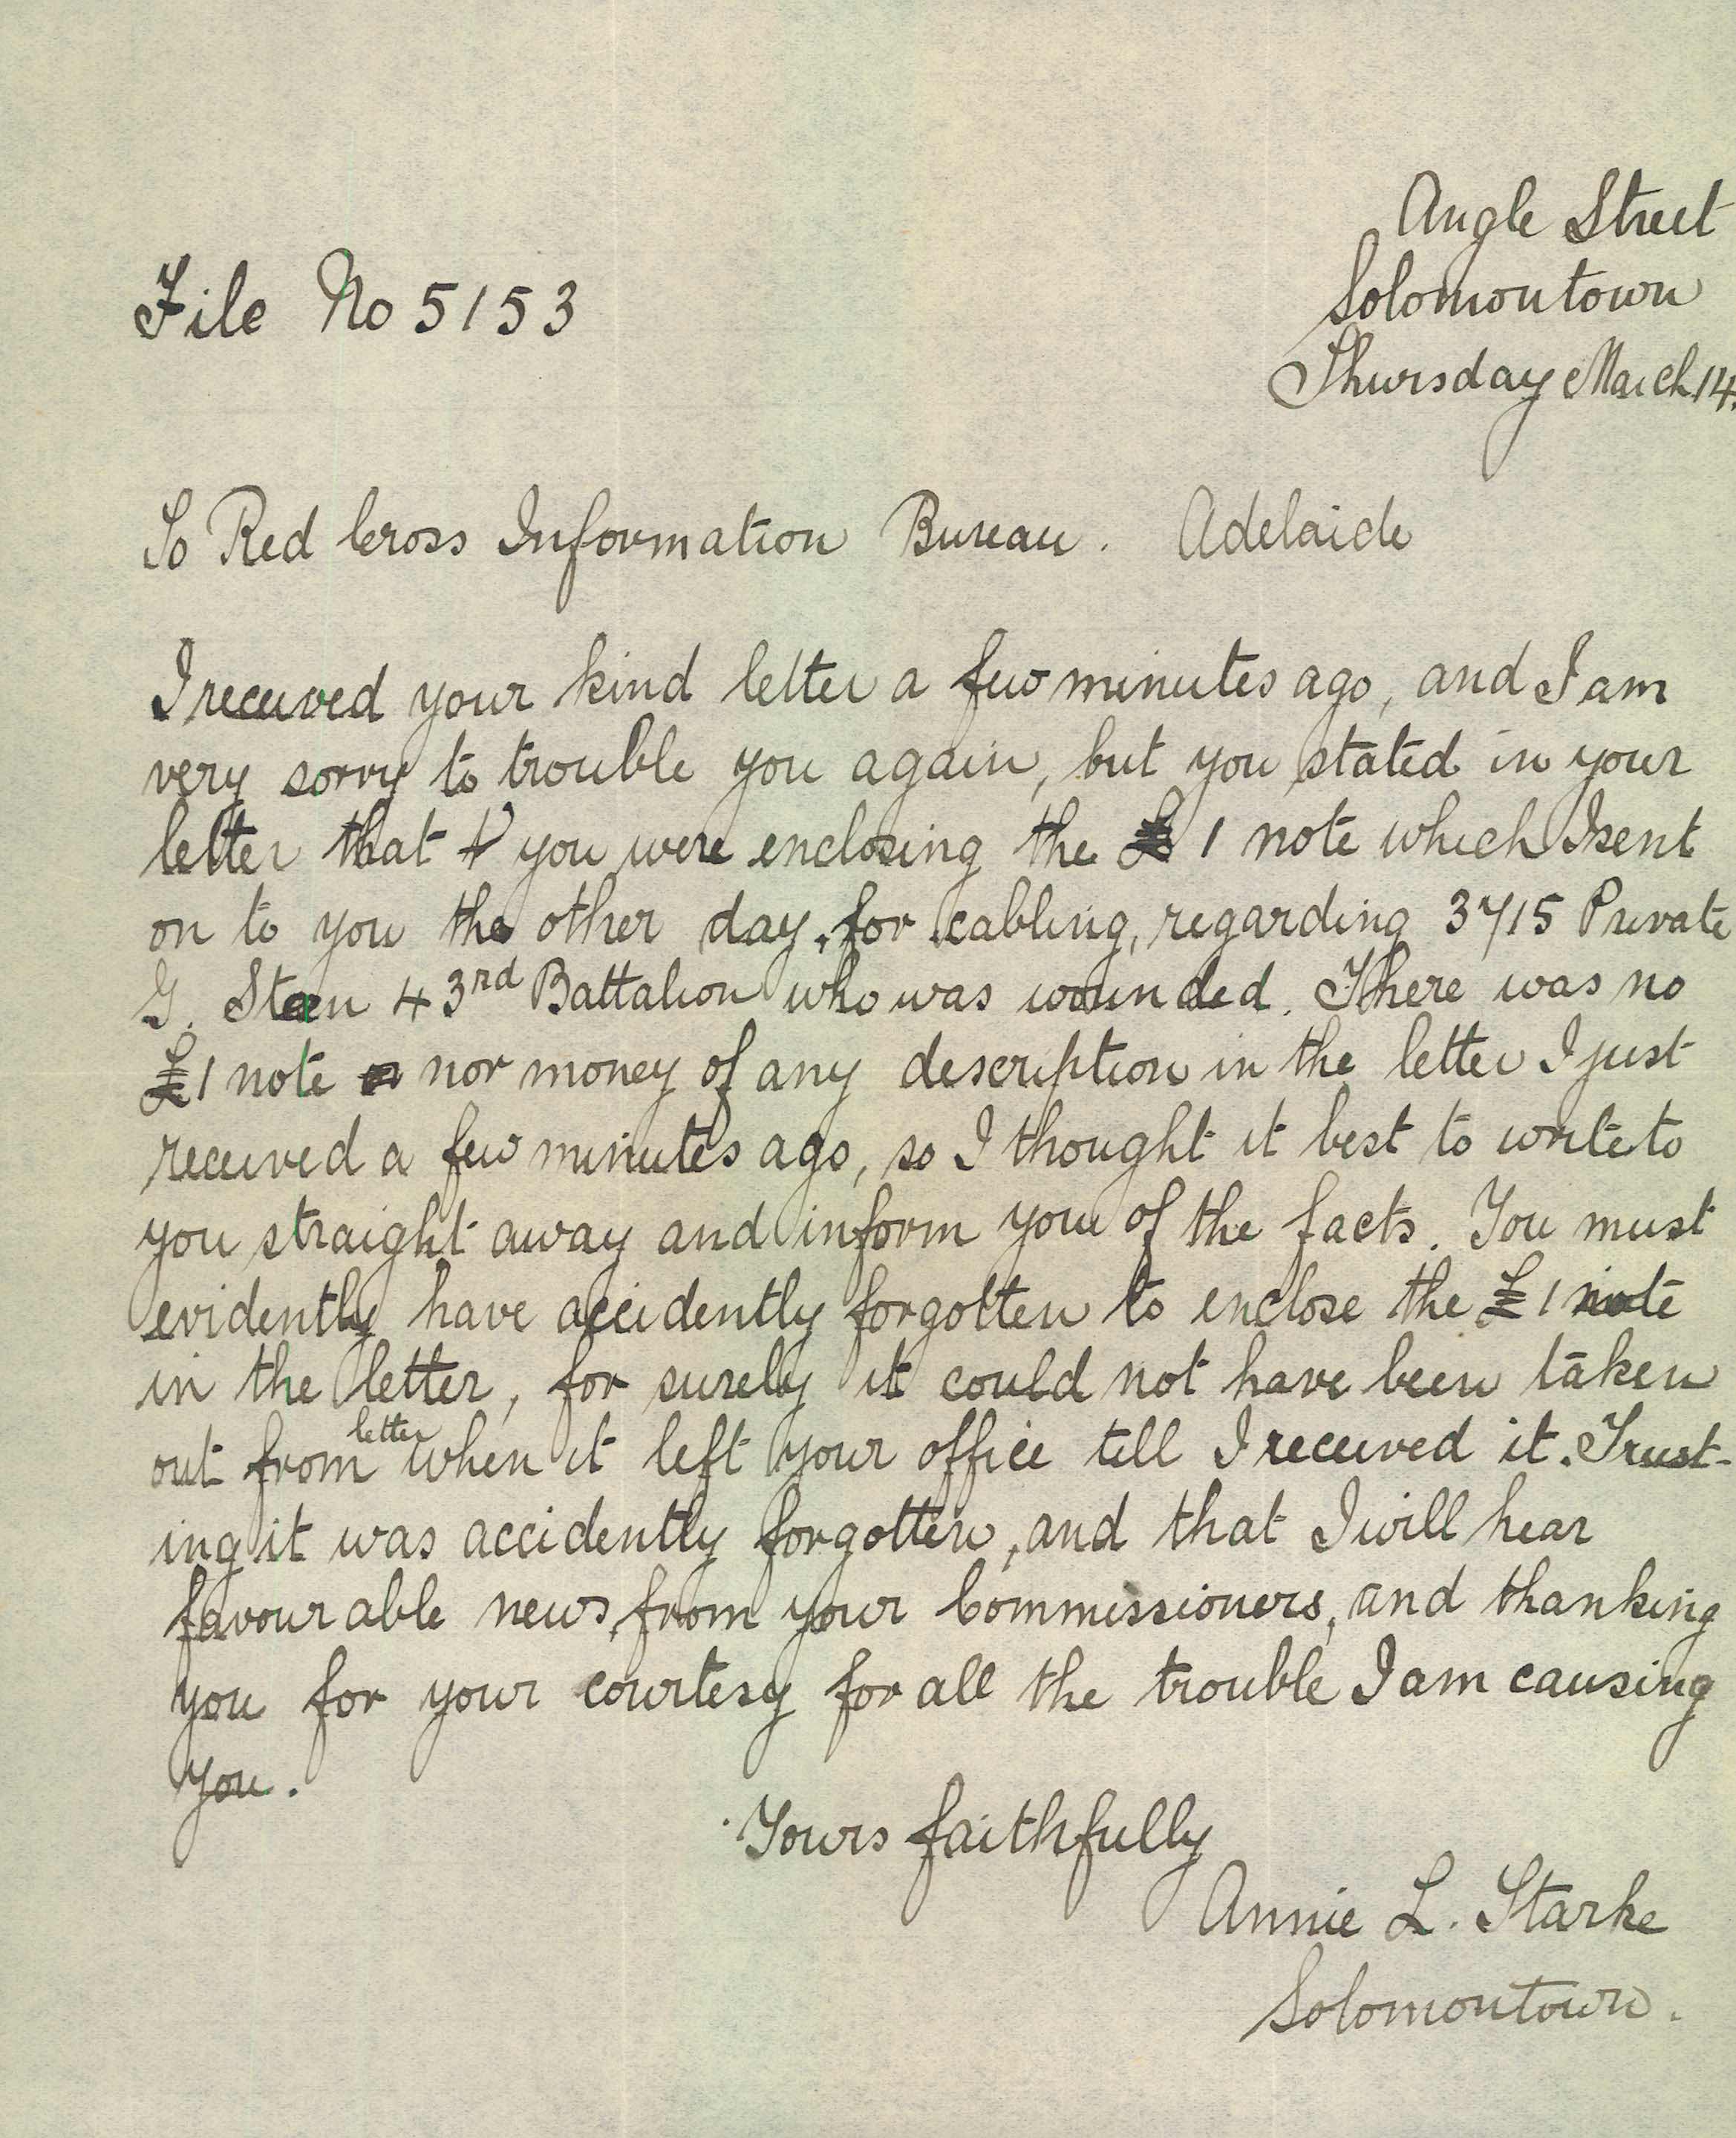 Angle Street
File No 5153
Solomontown
Thursday March 14.
To Red Cross Information Bureau. Adelaide
I received your kind letter a few minutes ago, and I am
very sorry to trouble you again, but you stated in your
letter that you were enclosing the £1 note which I sent
on to you the other day, for cabling, regarding 3715 Private
G. Steen 43rd Battalion who was wounded. There was no
£1 note nor money of any description in the letter I just
received a few minutes ago, so I thought it best to write to
you straight away and inform you of the facts. You must
evidently have accidently forgotten to enclose the £1 note
in the letter, for surely it could not have been taken
out from letter when it left your office till I received it. Trust-
ing it was accidently forgotten, and that I will hear
favourable news, from your Commissioners, and thanking
you for your courtesy for all the trouble I am causing
you.
Yours faithfully
Annie L. Starke
Solomontown.